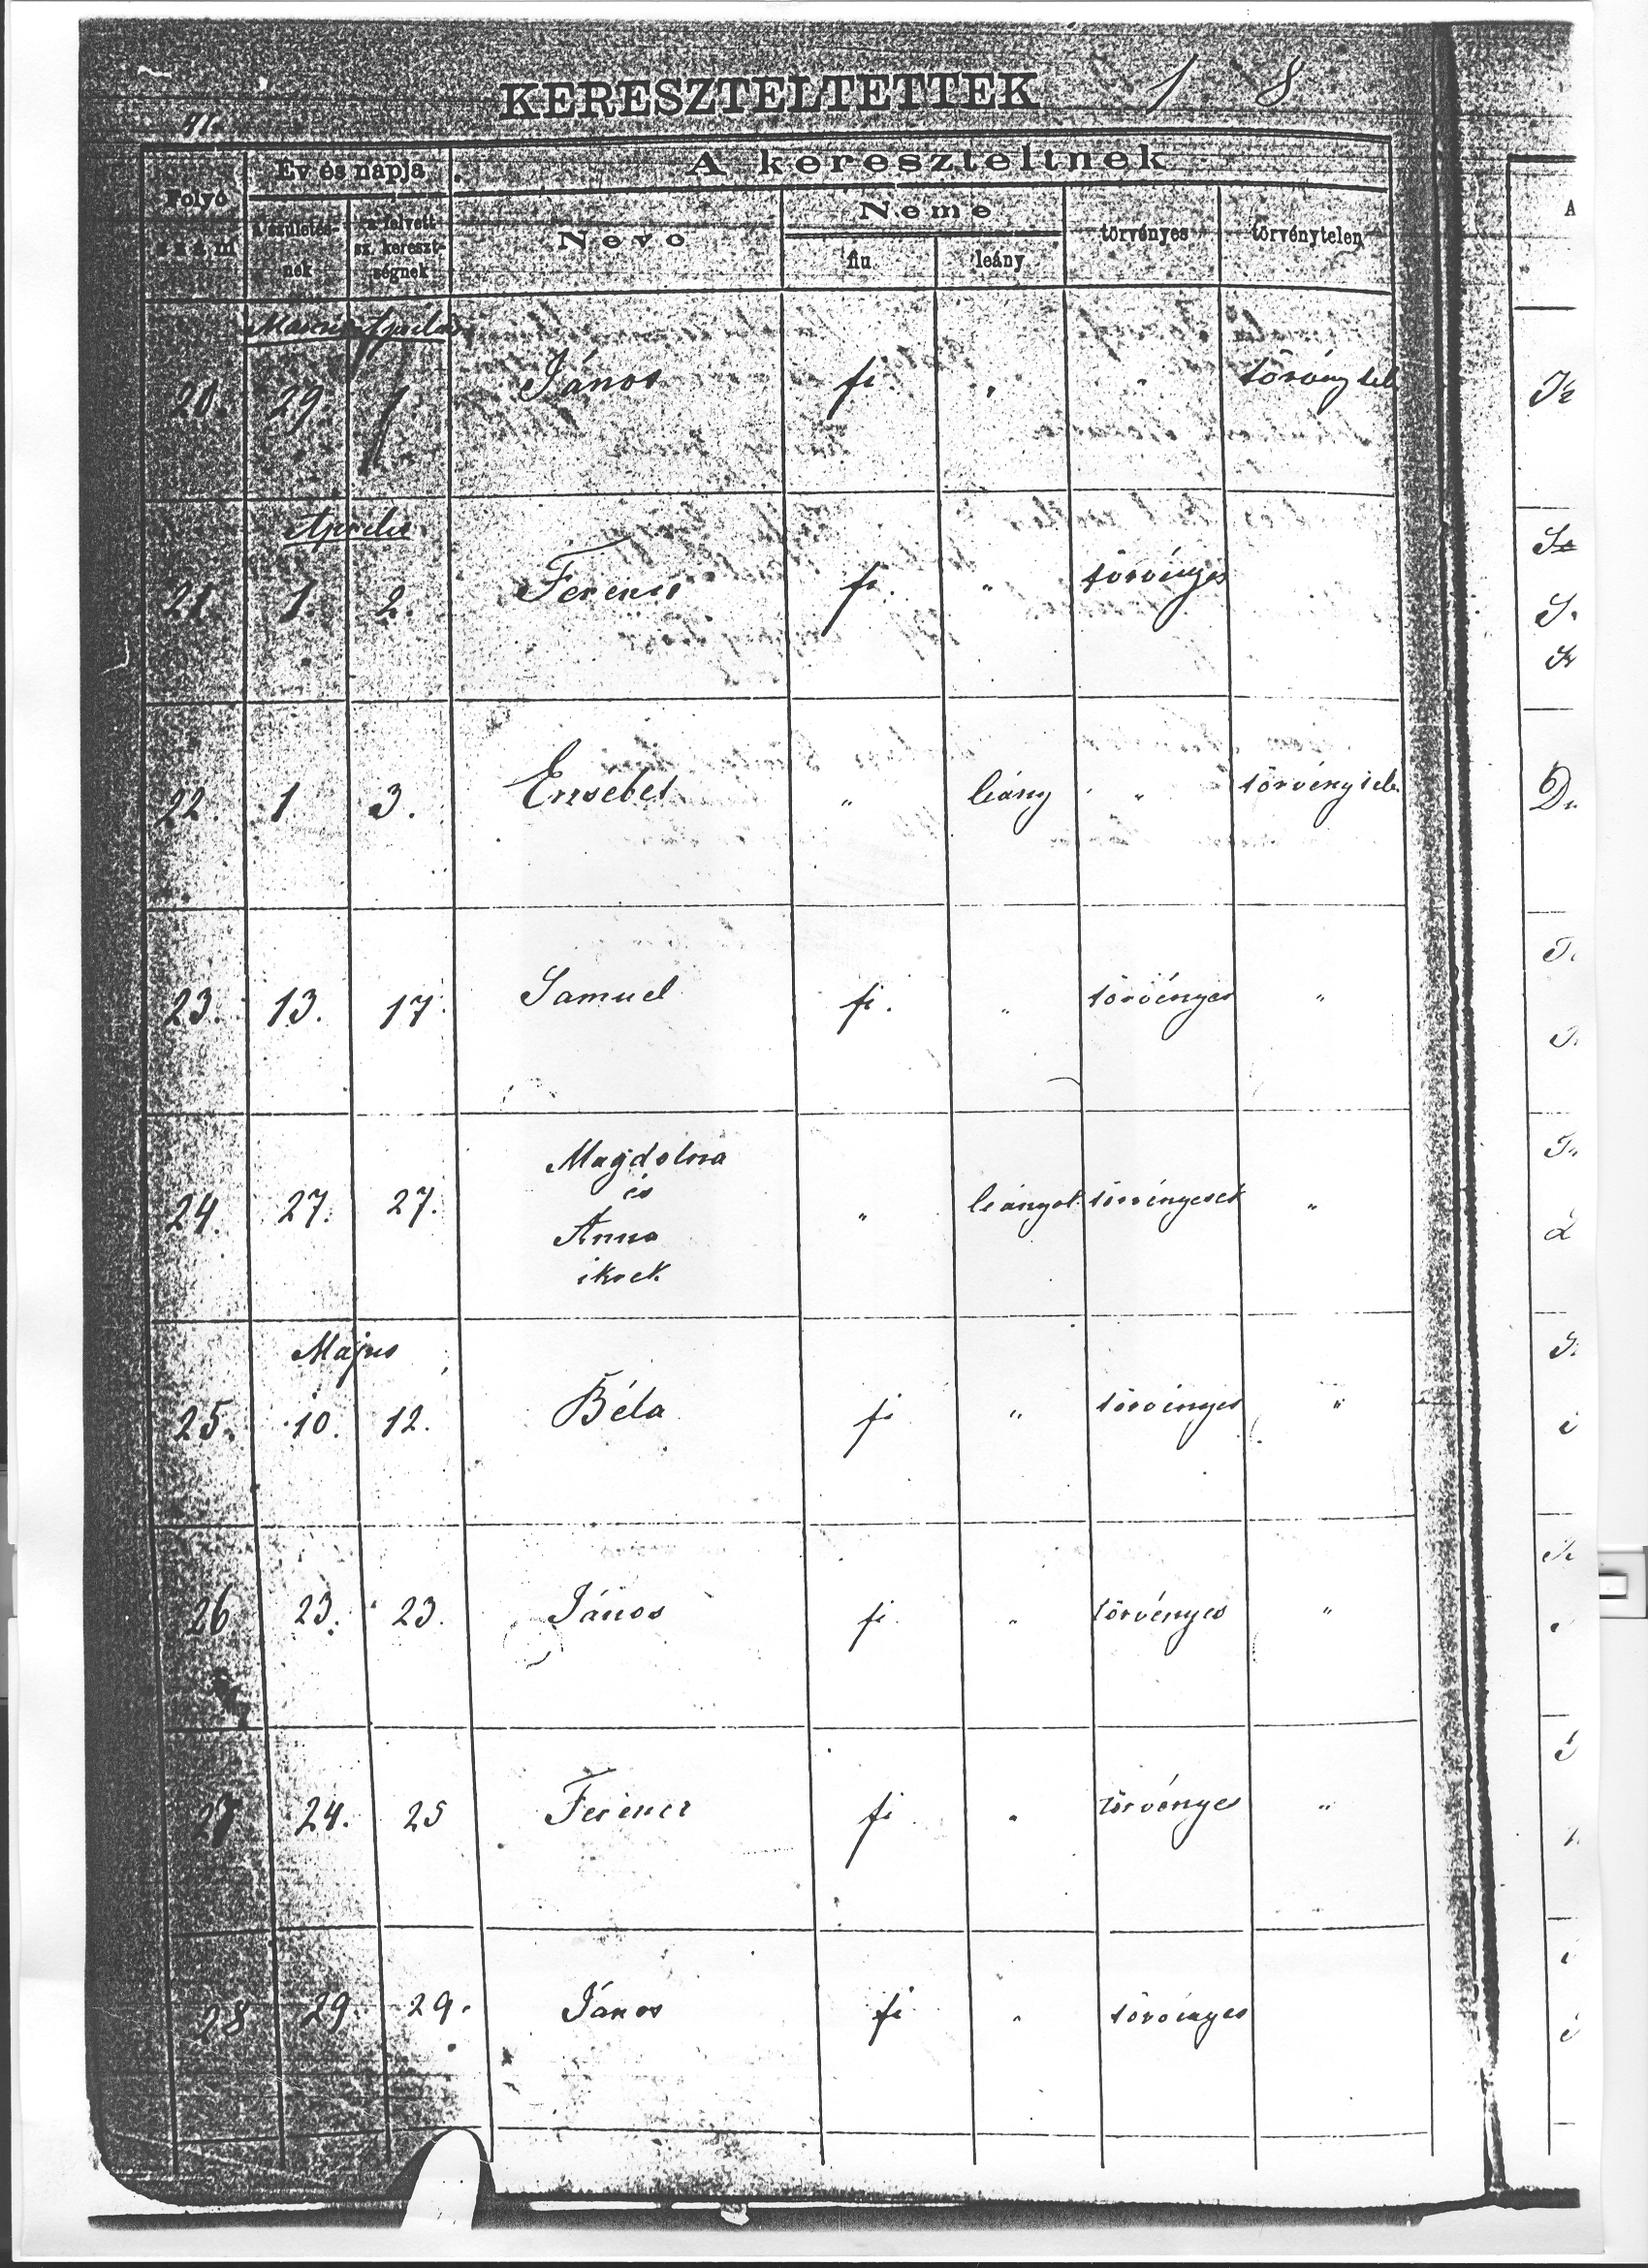 KERESZTELTETTEK 1 8
41.
Folyó szám
Év és napja
A kereszteltnek
a születésnek
a felvett sz. keresztségnek
Neve
Neme
fiu
leány
törvényes
törvénytelen
A
Április
20. 29 1 János fi. " " törvénytel
Április
21. 1. 2. Ferencz fi. " törvényes
22. 1 3. Erzsébet " leány " törvénytele
23. 13. 17. Samuel fi. " törvényes "
24. 27. 27. Magdolna
és
Anna
ikrek
" leányok törvényesek "
Május
25. 10. 12. Béla fi " törvényes "
26 23. 23. János fi " törvényes "
27 24. 25 Ferencz fi " törvényes "
28 29. 29. János fi " törvényes